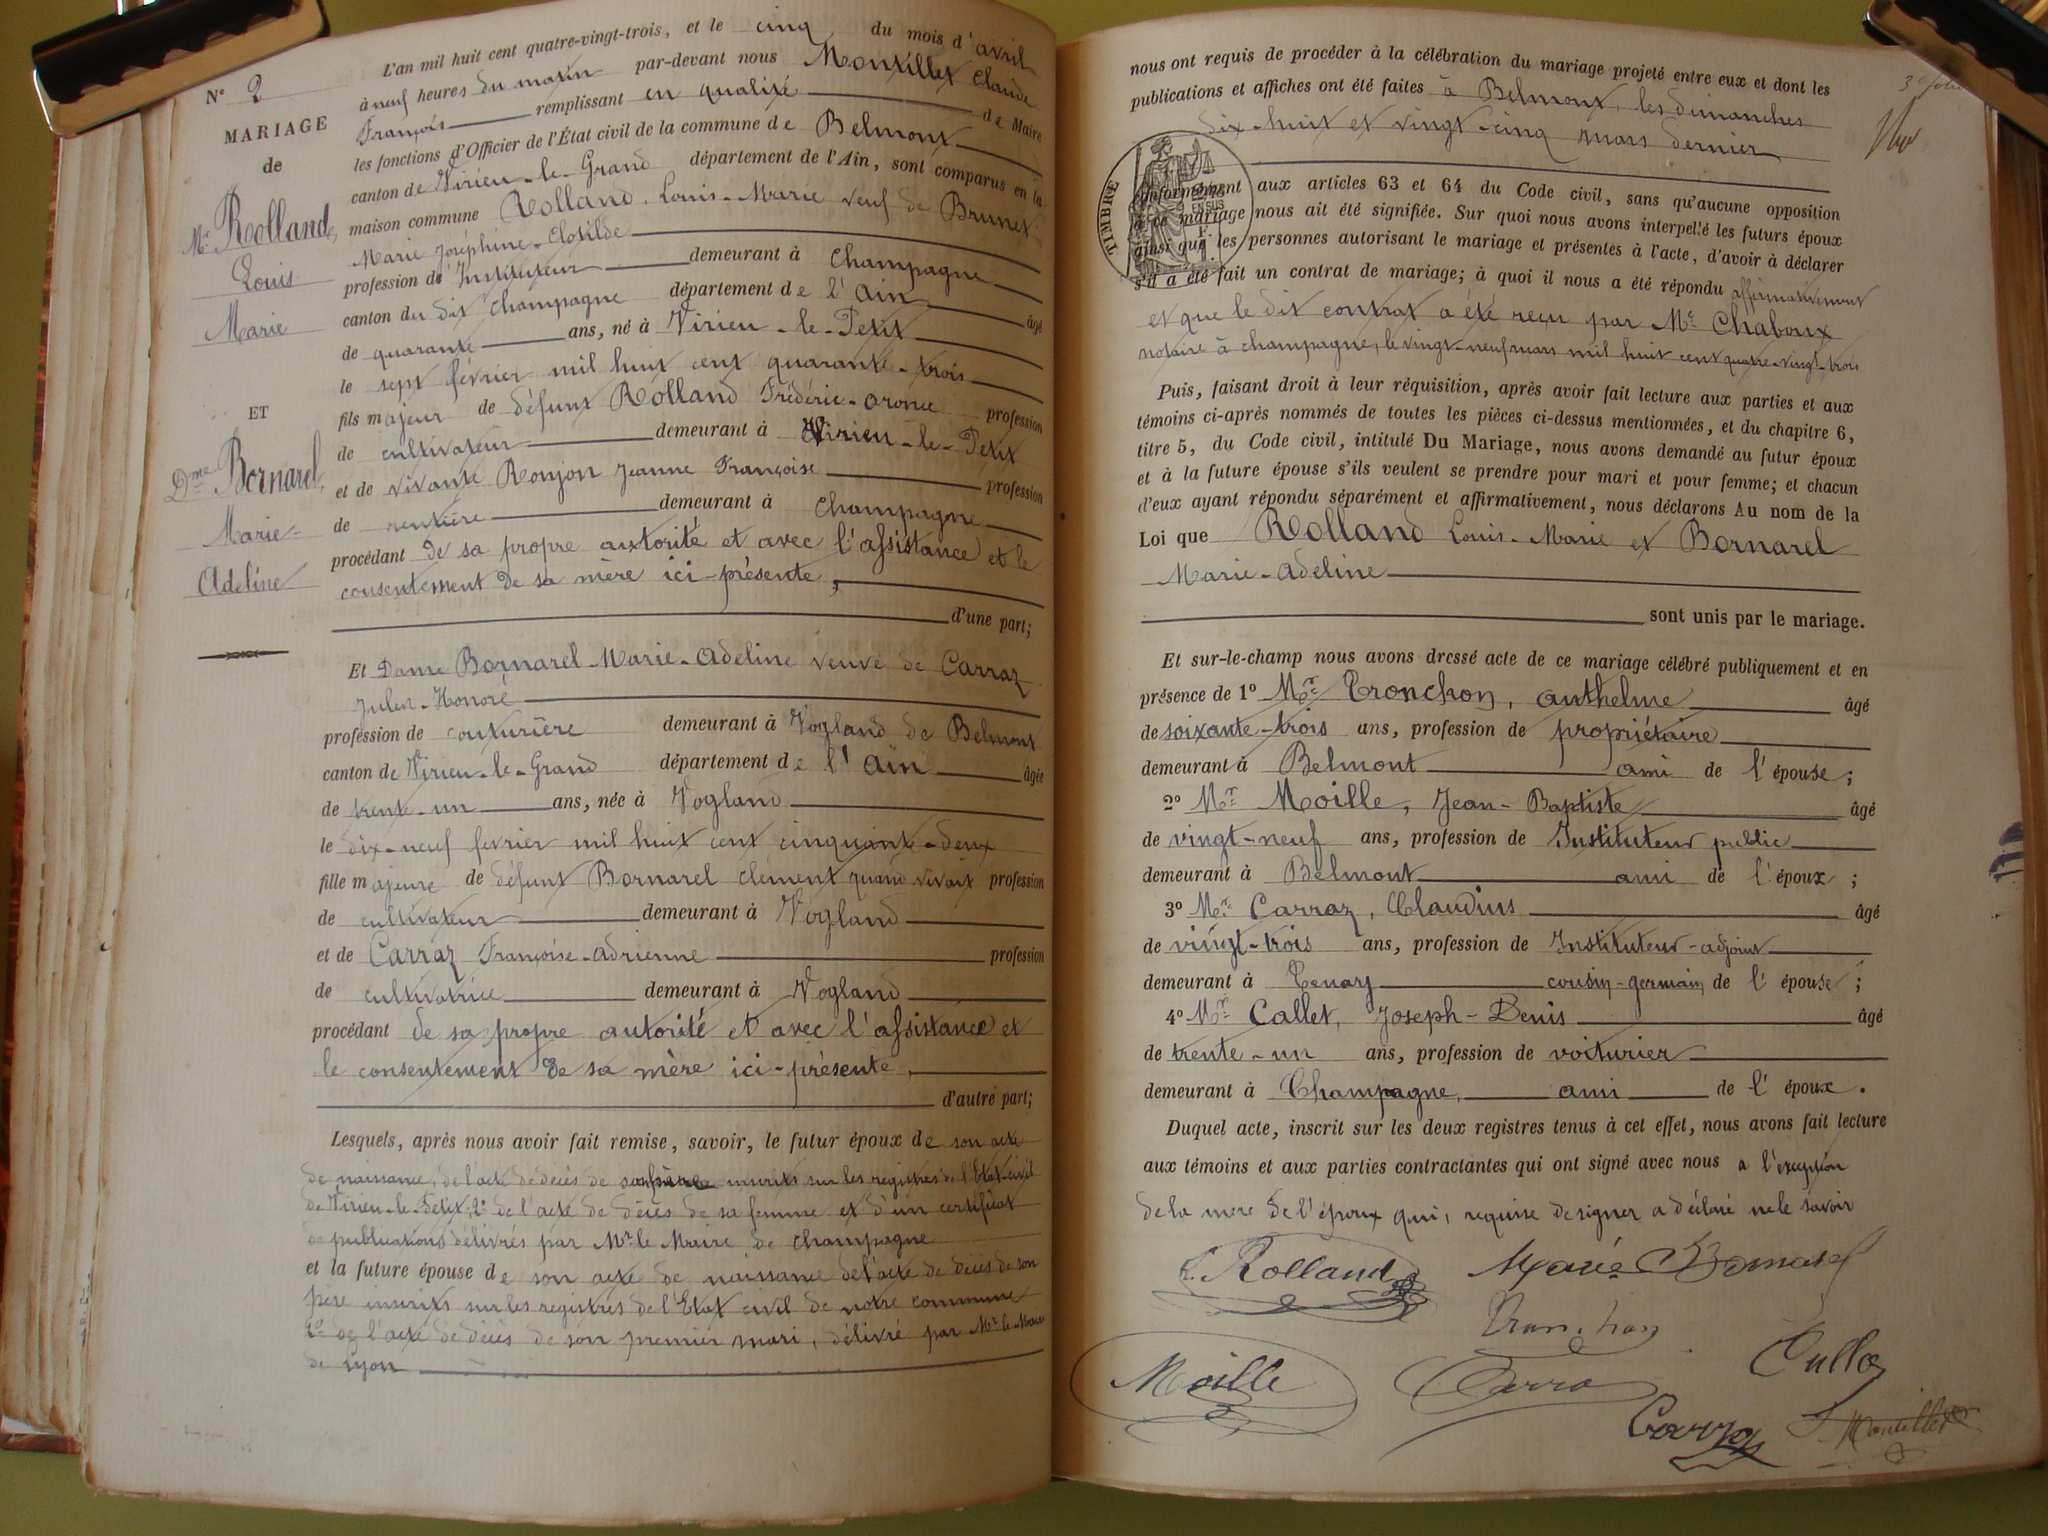 N° 2
MARIAGE
de
Mr Rolland,
Louis
Marie
ET
Dme Bornarel,
Marie-
Adeline
L'an mil huit cent quatre-vingt-trois, et le cinq du mois d'avril
à neuf heures du matin par-devant nous Montillet Claude
François remplissant en qualité de Maire
les fonctions d'Officier de l'État civil de la commune de Belmont
canton de Virieu-le-Grand département de l'Ain, sont comparus en la
maison commune Rolland, Louis-Marie veuf de Brunet
Marie Joséphine-Clotilde
profession de Instituteur demeurant à Champagne
canton du dit Champagne département de l'Ain âgé
de quarante ans, né à Virieu-le-Petit
le sept février mil huit cent quarante-trois
fils majeur de défunt Rolland Frédéric-Oronce profession
de cultivateur demeurant à Virieu-le-Petit
et de vivante Ronjon Jeanne Françoise profession
de rentière demeurant à Champagne
procédant de sa propre autorité et avec l'assistance et le
consentement de sa mère ici-présente,
d'une part;
Et Dame Bornarel-Marie-Adeline veuve de Carraz
Julien-Honoré
profession de couturière demeurant à Vogland de Belmont
canton de Virieu-le-Grand département de l'Ain âgée
de trente-un ans, née à Vogland
le dix-neuf février mil huit cent cinquante-deux
fille majeure de défunt Bornarel Clément quand vivait profession
de cultivateur demeurant à Vogland
et de Carraz Françoise-Adrienne profession
de cultivatrice demeurant à Vogland
procédant de sa propre autorité et avec l'assistance et
le consentement de sa mère ici-présente,
d'autre part;
Lesquels, après nous avoir fait remise, savoir, le futur époux de son acte
de naissance, de l'acte de décès de son père inscrits sur les registres de l'Etat-civil
de Virieu-le-Petit; 2° de l'acte de décès de sa femme et d'un certificat
de publications délivrés par Mr le Maire de Champagne
et la future épouse de son acte de naissance de l'acte de décès de son
père inscrits sur les registres de l'Etat civil de notre commune
2° de l'acte de décès de son premier mari, délivré par Mr le Maire
de Lyon
nous ont requis de procéder à la célébration du mariage projeté entre eux et dont les
publications et affiches ont été faites à Belmont, les dimanches
dix-huit et vingt-cinq mars dernier
TIMBRE
conformément aux articles 63 et 64 du Code civil, sans qu'aucune opposition
à ce mariage nous ait été signifiée. Sur quoi nous avons interpelé les futurs époux
ainsi que les personnes autorisant le mariage et présentes à l'acte, d'avoir à déclarer
s'il a été fait un contrat de mariage; à quoi il nous a été répondu affirmativement
et que le dit contrat a été reçu par Mr Chaboux
notaire à Champagne, le vingt-neuf mars mil huit cent quatre-vingt-trois
Puis, faisant droit à leur réquisition, après avoir fait lecture aux parties et aux
témoins ci-après nommés de toutes les pièces ci-dessus mentionnées, et du chapitre 6,
titre 5, du Code civil, intitulé Du Mariage, nous avons demandé au futur époux
et à la future épouse s'ils veulent se prendre pour mari et pour femme; et chacun
d'eux ayant répondu séparément et affirmativement, nous déclarons Au nom de la
Loi que Rolland Louis-Marie et Bornarel
Marie-Adeline
sont unis par le mariage.
Et sur-le-champ nous avons dressé acte de ce mariage célébré publiquement et en
présence de 1° Mr Tronchon, Anthelme âgé
de soixante-trois ans, profession de propriétaire
demeurant à Belmont ami de l'épouse;
2° Mr Moille, Jean-Baptiste âgé
de vingt-neuf ans, profession de Instituteur public
demeurant à Belmont ami de l'époux;
3° Mr Carraz, Claudius âgé
de vingt-trois ans, profession de Instituteur-adjoint
demeurant à Tenay cousin-germain de l'épouse;
4° Mr Callet, Joseph-Denis âgé
de trente-un ans, profession de voiturier
demeurant à Champagne, ami de l'époux.
Duquel acte, inscrit sur les deux registres tenus à cet effet, nous avons fait lecture
aux témoins et aux parties contractantes qui ont signé avec nous à l'exception
de la mère de l'époux qui, requise de signer a déclaré ne le savoir
L. Rolland Marie Bornarel
Tronchon
Moille Carra
Carraz Montillet